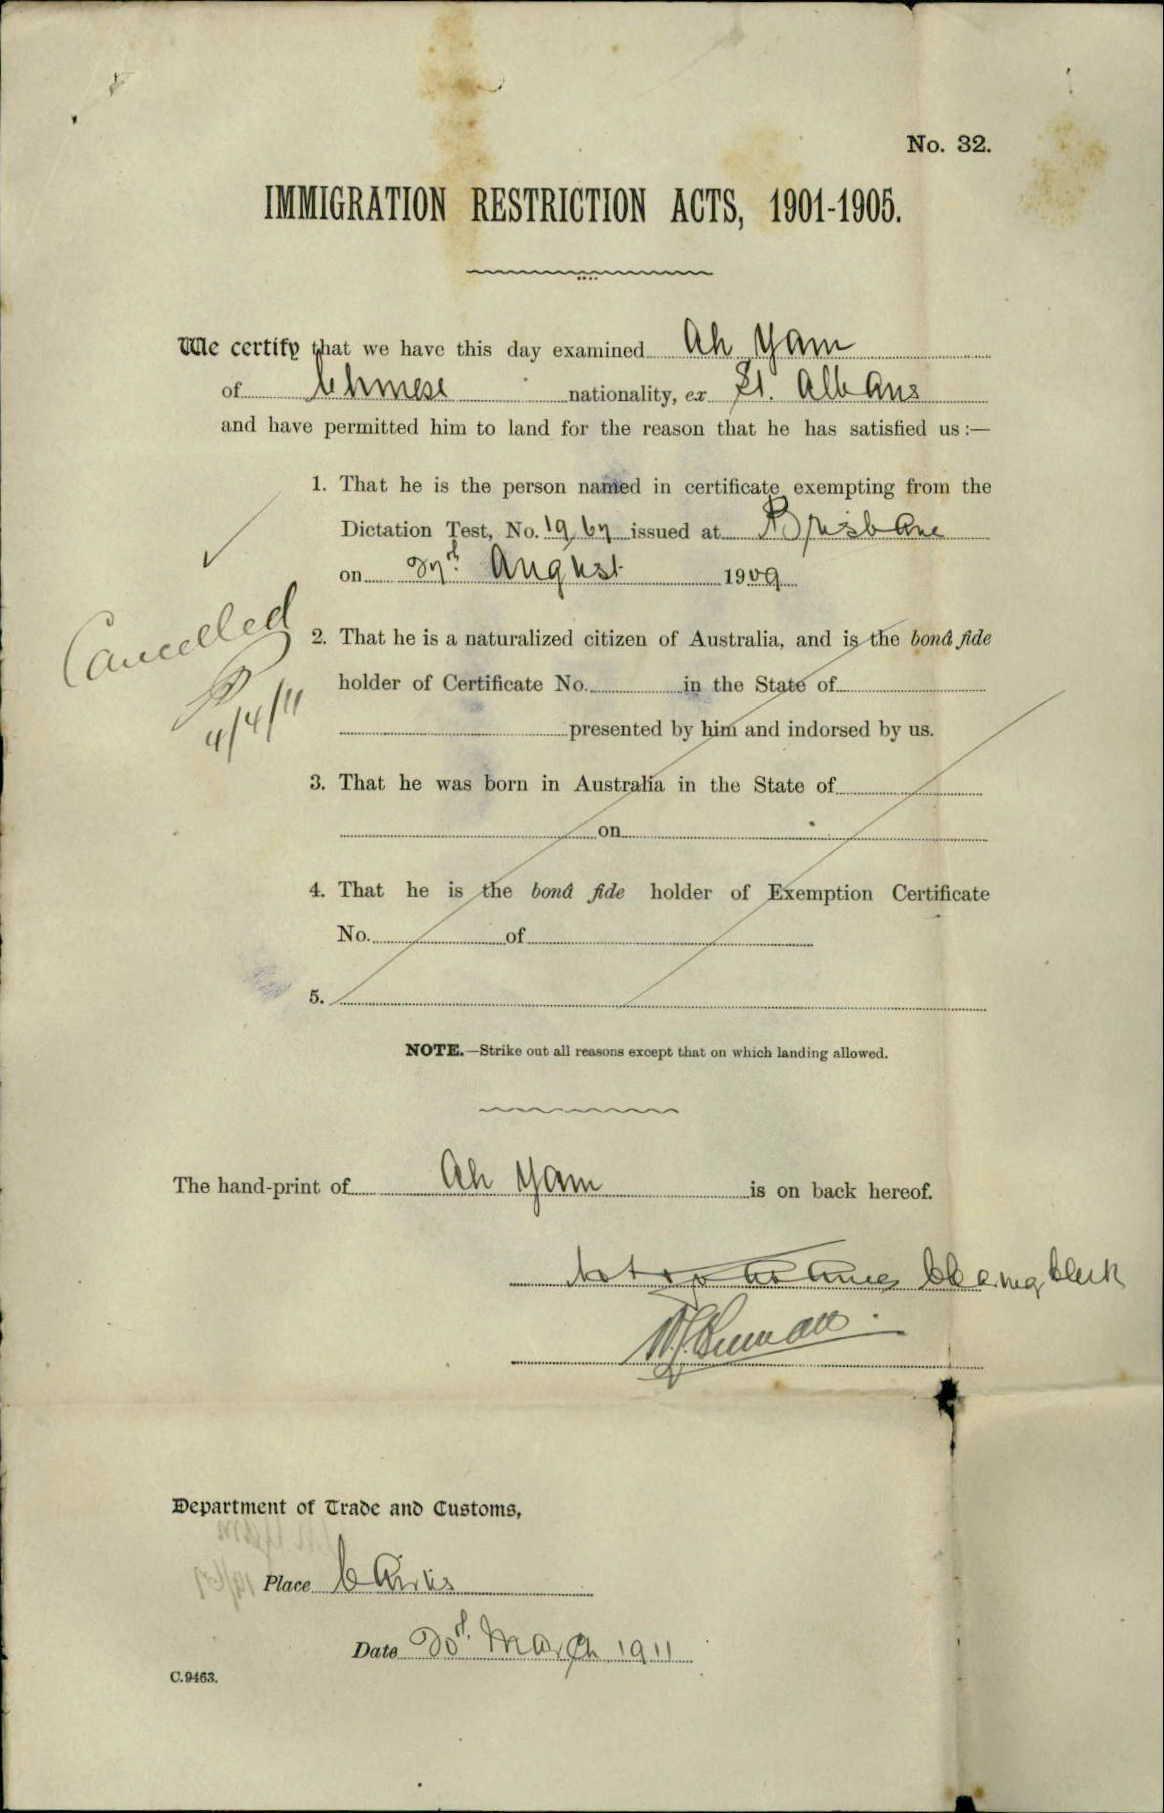 No. 32.
IMMIGRATION RESTRICTION ACTS, 1901-1905.
We certify that we have this day examined Ah Yam
of Chinese nationality, ex St. Albans
and have permitted him to land for the reason that he has satisfied us:—
1. That he is the person named in certificate exempting from the
Dictation Test, No. 19/67 issued at Brisbane
on 27th August 1909
Cancelled
4/4/11
2. That he is a naturalized citizen of Australia, and is the bonâ fide
holder of Certificate No. in the State of
presented by him and indorsed by us.
3. That he was born in Australia in the State of
on
4. That he is the bonâ fide holder of Exemption Certificate
No. of
5.
NOTE.—Strike out all reasons except that on which landing allowed.
The hand-print of Ah Yam is on back hereof.
Clerk
Department of Trade and Customs,
Place Cairns
Date 30th March 1911
C.9463.